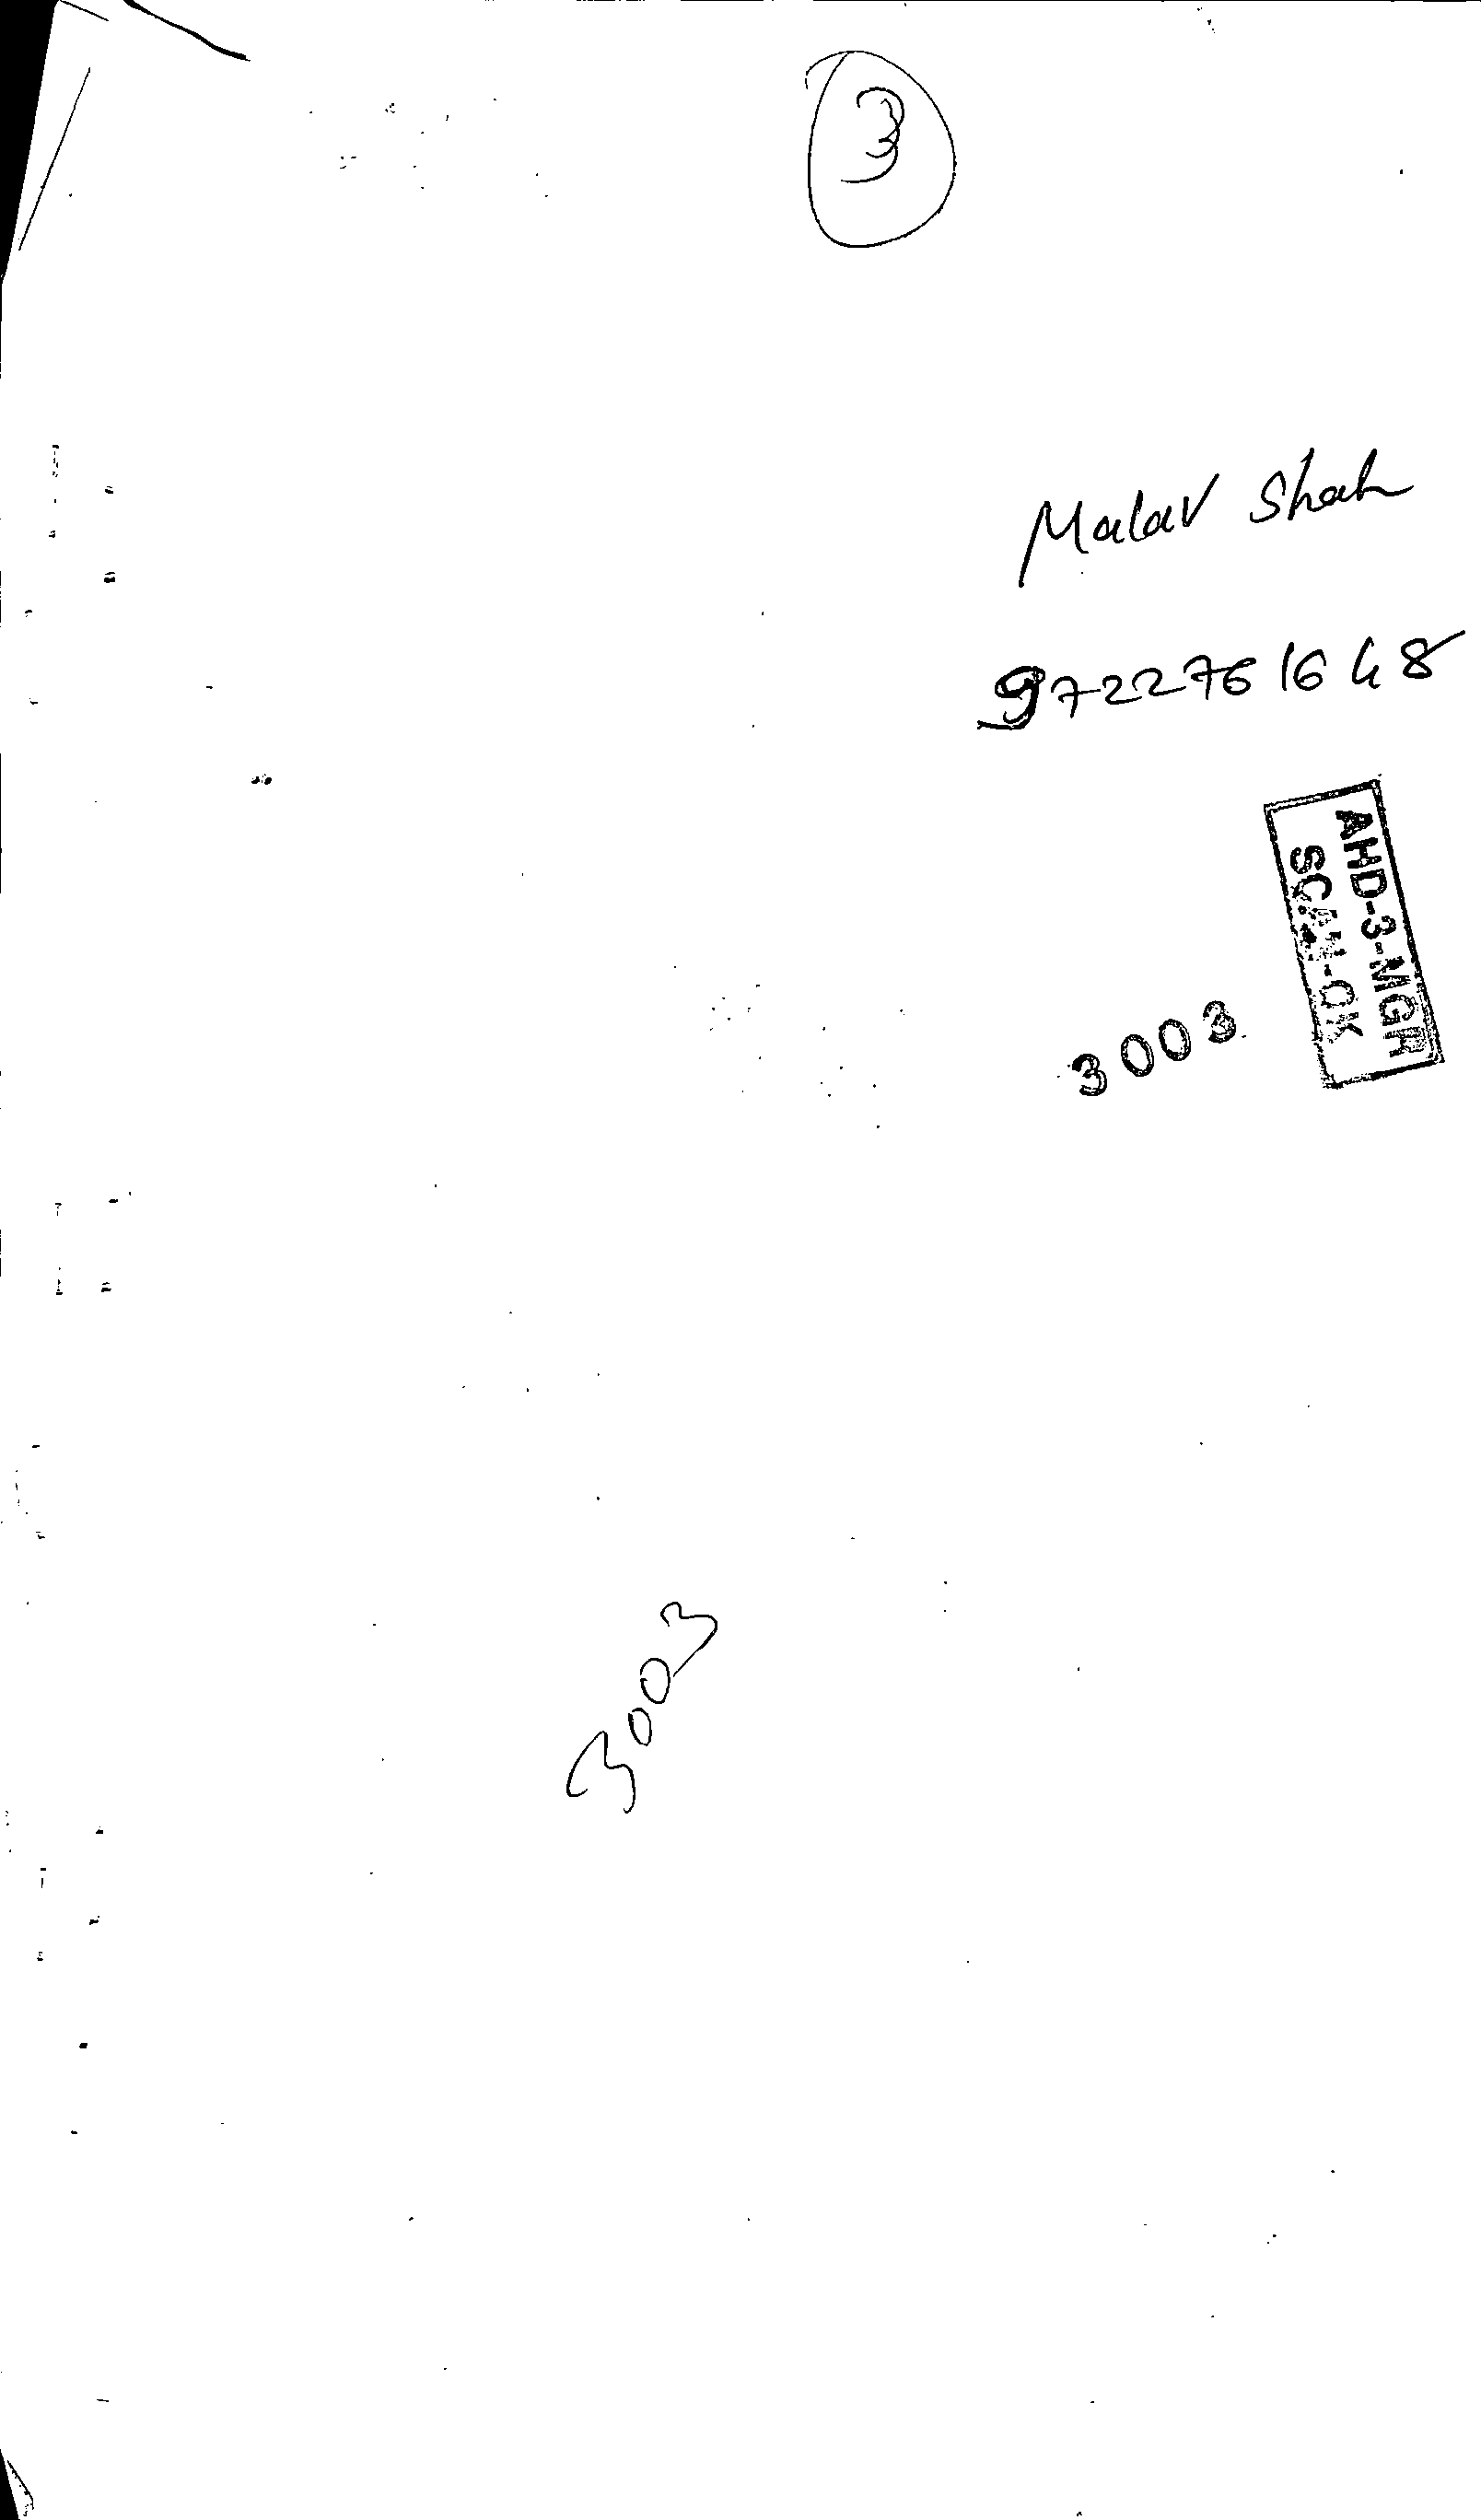 3
Malav Shah
9722761648
AHD-3-MGR
SCAN-OK
3003
3003